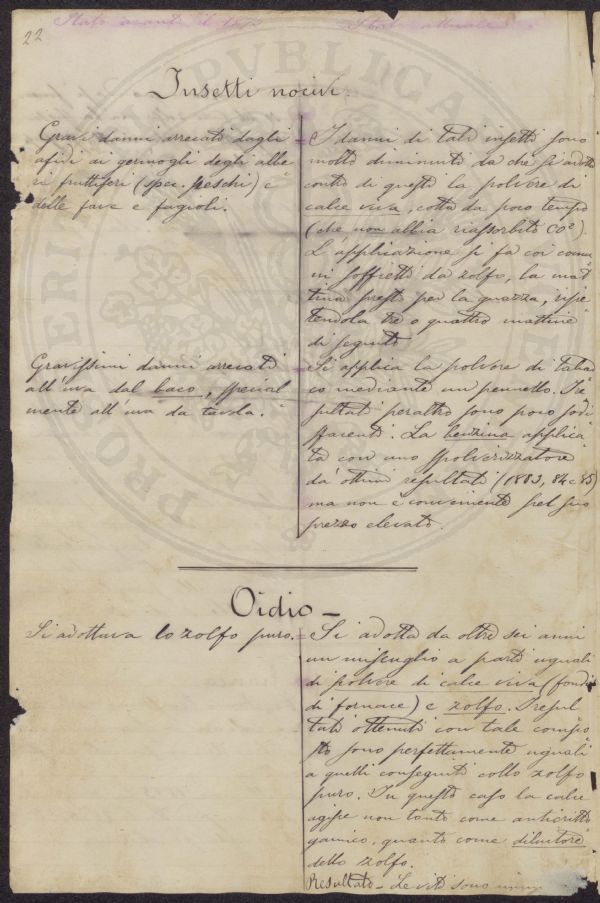 22
Stato avanti il
Stato attuale
Insetti nocivi
Gravi danni arrecati dagli
afidi ai germogli degli albe
ri fruttiferi (spec. peschi) e
delle fave e fagioli.
I danni di tali insetti sono
molto diminuiti da che si adotta
contro di questi la polvere di
calce viva, cotta da poco tempo
(che non abbia riassorbito CO²).
L'applicazione si fa coi comu
ni soffietti da zolfo, la mat
tina presto per la guazza, ripe
tendola tre o quattro mattine
di seguito
Gravissimi danni arrecati
all'uva dal baco, special
mente all'uva da tavola.
Si applica la polvere di tabac
co mediante un pennello. I re
sultati peraltro sono poco sodi
sfacenti. La benzina applica
ta con uno spolverizzatore
dà ottimi resultati (1883, 84 e 85)
ma non è conveniente pel suo
prezzo elevato.
Oidio
Si adottava lo zolfo puro.
Si adotta da oltre sei anni
un miscuglio a parti uguali
di polvere di calce viva (fondi
di fornace) e zolfo. I resul
tati ottenuti con tale compo
sto sono perfettamente uguali
a quelli conseguiti collo zolfo
puro. In questo caso la calce
agisce non tanto come anticritto
gamico, quanto come diluitore
dello zolfo.
Resultato - Le viti sono
PRO RI PUBLICA E